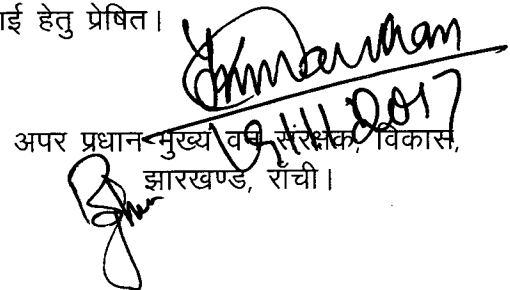 ाई हेतु प्रेषित।
15/11/2017
अपर प्रधान मुख्य वन संरक्षक, विकास,
झारखण्ड, राँची।